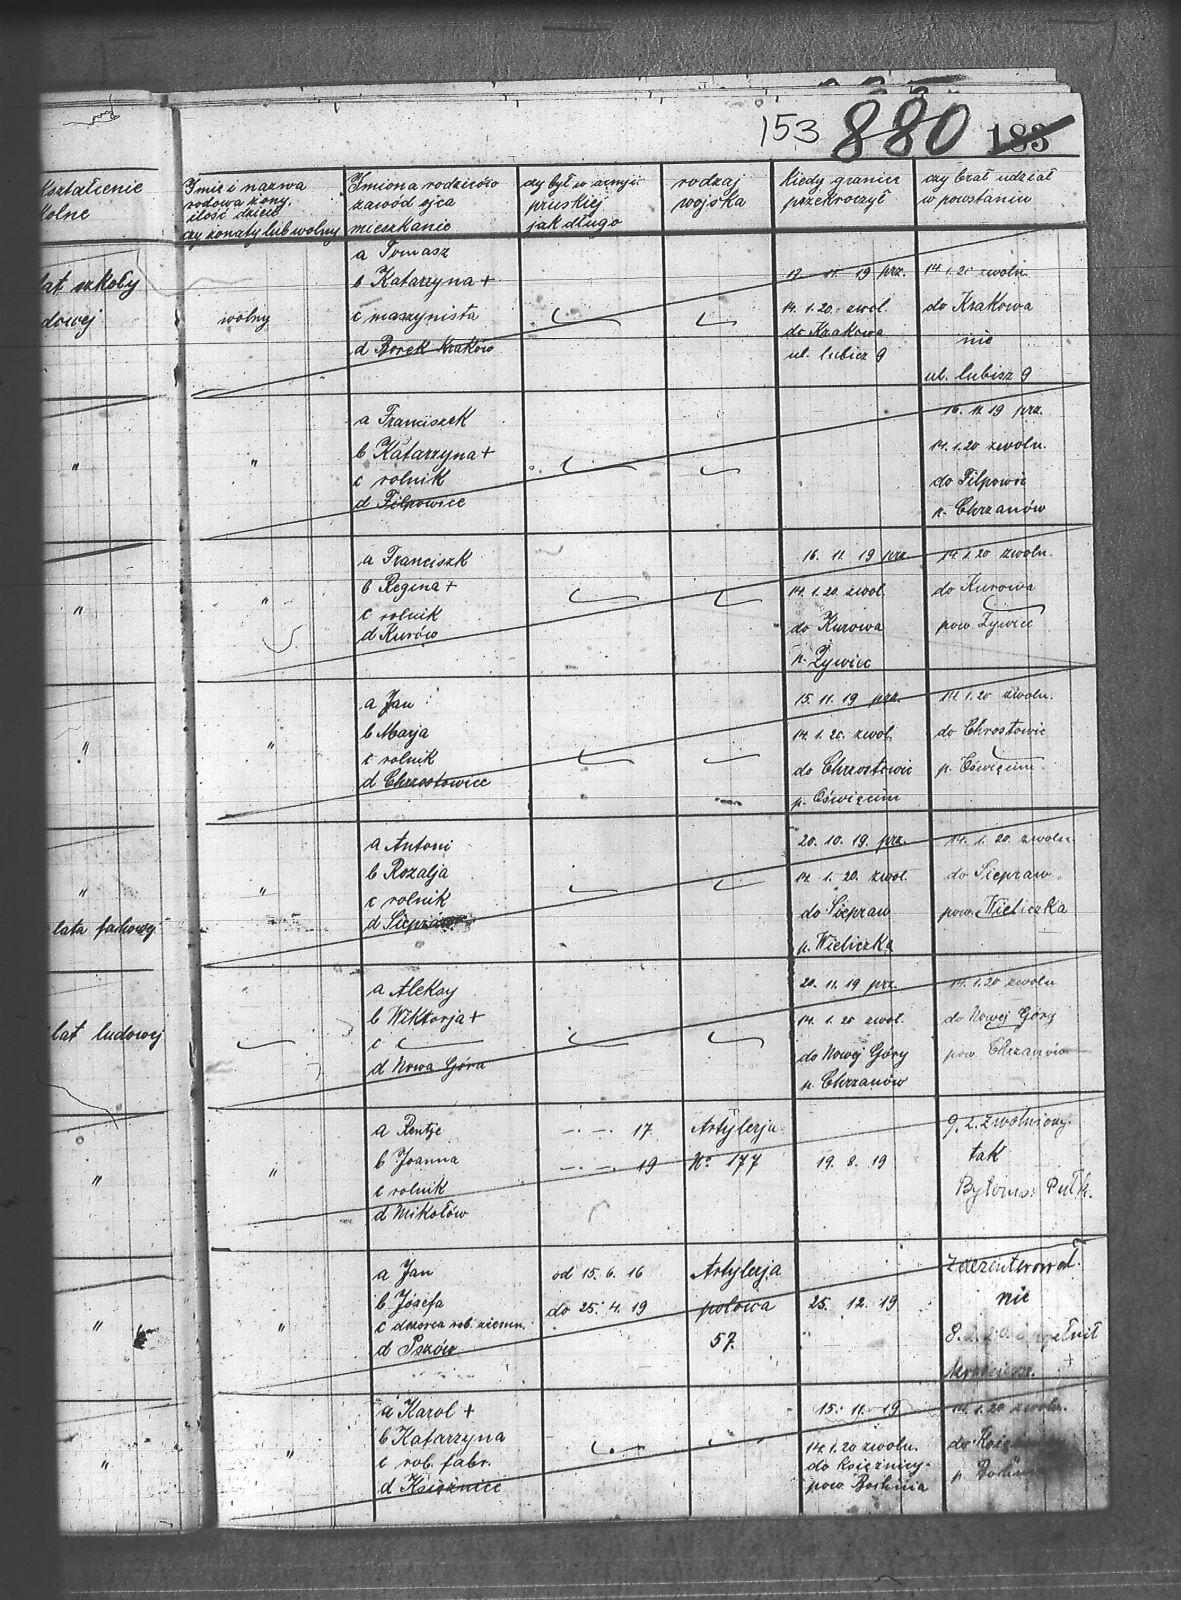 153 880 183
kształcenie
kolne
Imię i nazwa
rodowa żony,
ilość dzieci
czy żonaty lub wolny
Imiona rodziców
zawód ojca
mieszkanie
czy był w armji
pruskiej
jak długo
rodzaj
wojska
kiedy granicę
przekroczył
czy brał udział
w powstaniu
lat szkoły
dowej
wolny
a Tomasz
b Katarzyna +
c maszynista
d Borek Kraków
17. 11. 19 prz.
14. 1. 20. zwol.
do Krakowa
ul. lubicz 9
14 1. 20 zwoln.
do Krakowa
nie
ul. lubisz 9
"
"
a Franciszek
b Katarzyna +
c rolnik
d Filpowice
16. 11. 19 prz.
14. 1. 20 zwoln.
do Filpowic
p. Chrzanów
"
"
a Franciszk
b Regina +
c rolnik
d Kurów
16. 11. 19 prz
14. 1. 20. zwol.
do Kurowa
p. Żywiec
14. 1. 20 zwoln.
do Kurowa
pow. Żywiec
"
"
a Jan
b Marja
c rolnik
d Chrostowice
15. 11. 19 prz.
14. 1. 20. zwol.
do Chrostowic
p. Oświęcim
14. 1. 20 zwoln.
do Chrostowic
p. Oświęcim.
"
lata fachowej
"
a Antoni
b Rozalja
c rolnik
d Siepraw
20. 10. 19. prz.
14. 1. 20. zwol.
do Siepraw
p. Wieliczka
14. 1. 20. zwoln.
do Siepraw.
pow. Wieliczka
lat ludowej
a Aleksy
b Wiktorja +
c
d Nowa Góra
20. 11. 19 prz.
14. 1. 20 zwol.
do Nowej Góry
p. Chrzanów
14. 1. 20 zwoln
do Nowej Góry
pow. Chrzanów
"
"
a
b Joanna
c rolnik
d Mikołów
—. —. 17.
—. —. 19
Artylerja
No. 177
19. 8. 19
9. 2. zwolniony.
tak
Bytoms. Pułk.
"
"
a Jan
b Józefa
c dozorca rob. ziemn.
d Pszów
od 15. 6. 16
do 25. 4. 19
Artylerja
polowa
57.
25. 12. 19
Zdezenterował.
nie
8.
"
"
a Karol +
b Katarzyna
c rob. fabr.
d Książnice
15. 11. 19
14. 1. 20 zwoln.
do książnicy.
pow. Bochnia
14. 1. 20 zwoln.
do
p. Bochnia